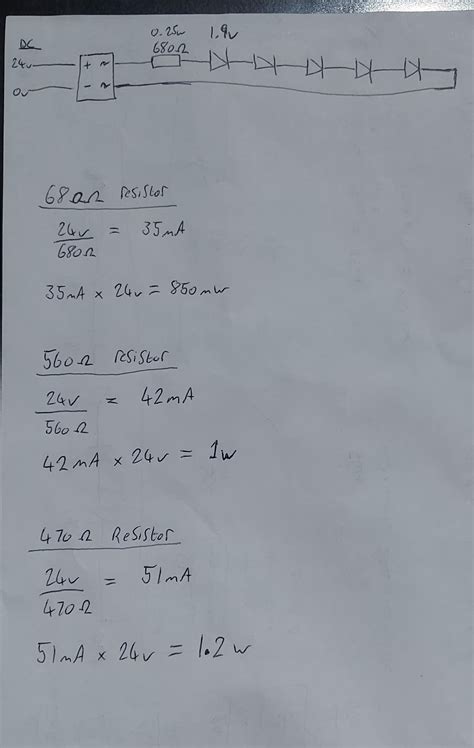 DC
0.25w 1.9v
24v + ~ 680Ω
0v - ~
680Ω resistor
24v = 35mA
680Ω
35mA × 24v = 850mw
560Ω resistor
24v = 42mA
560Ω
42mA × 24v = 1w
470Ω Resistor
24v = 51mA
470Ω
51mA × 24v = 1.2w